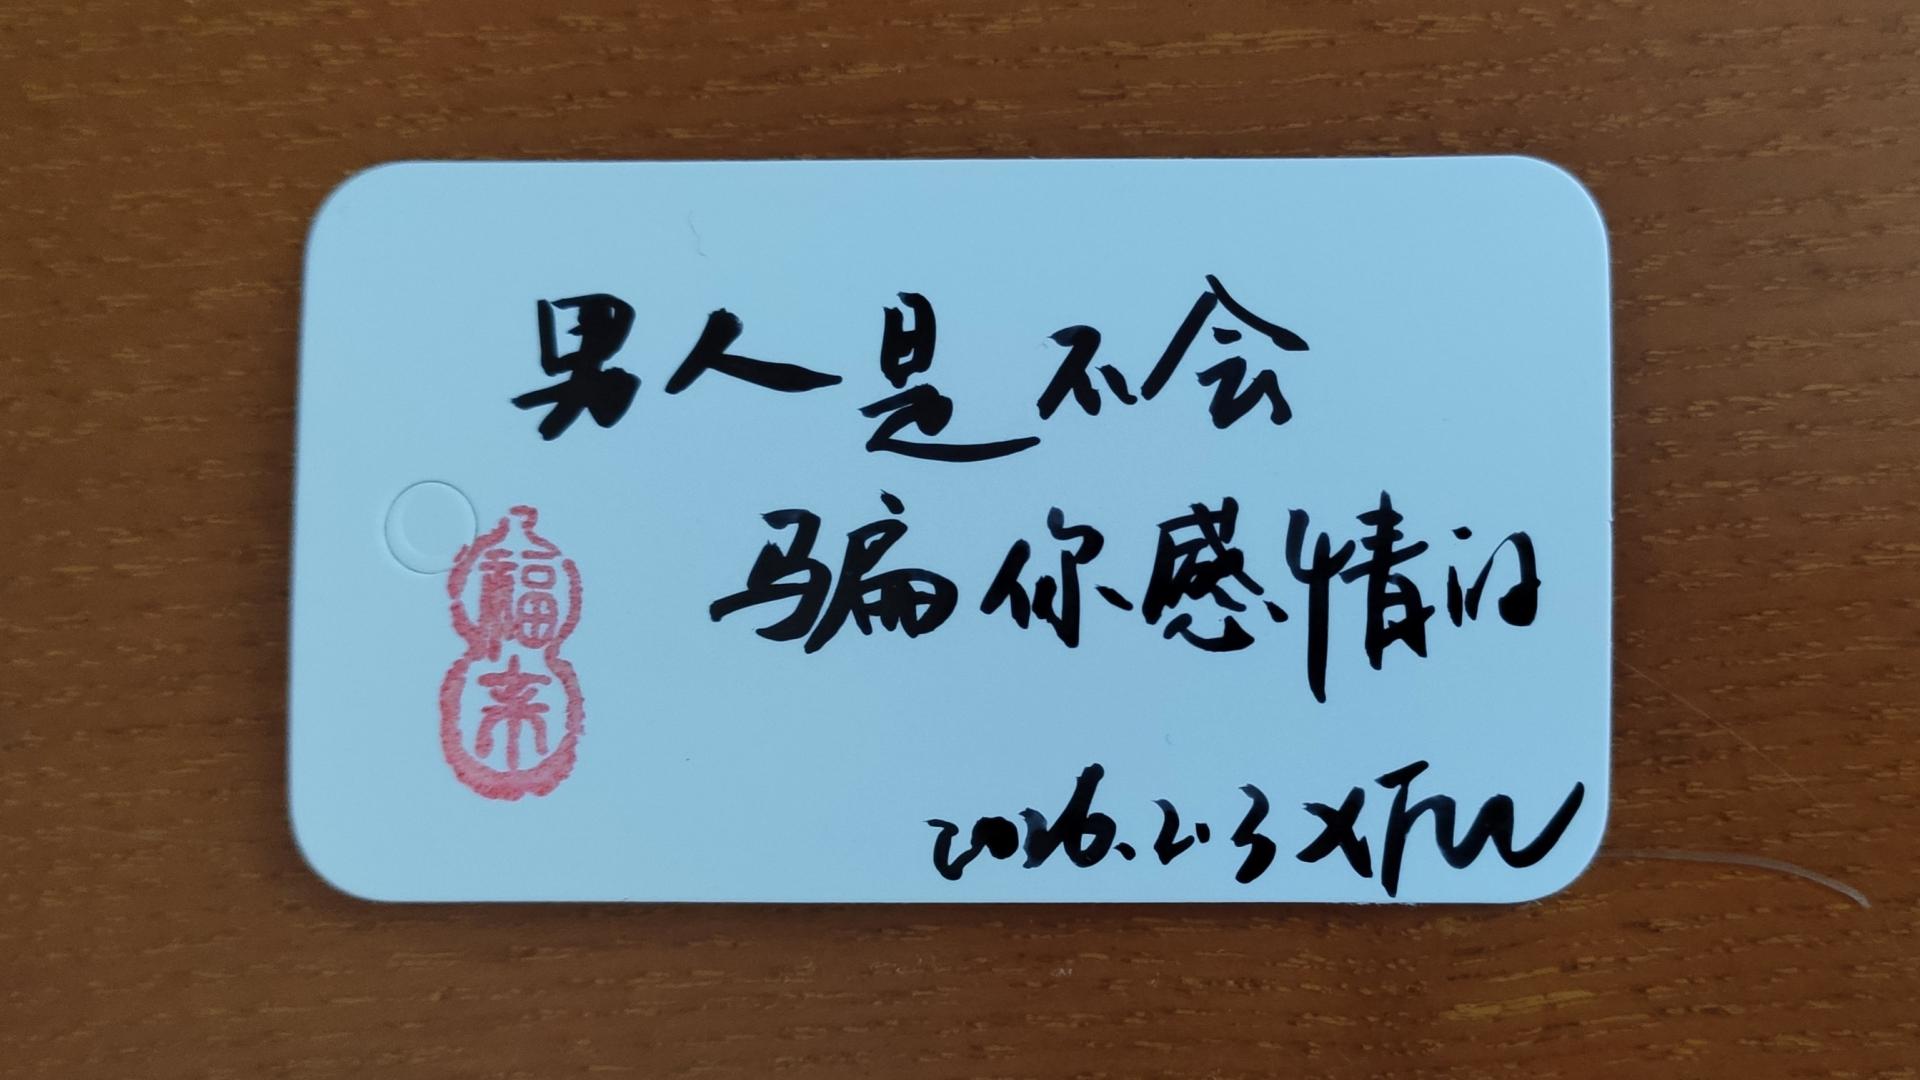 男人是不会
骗你感情的
福来
2026.2.3